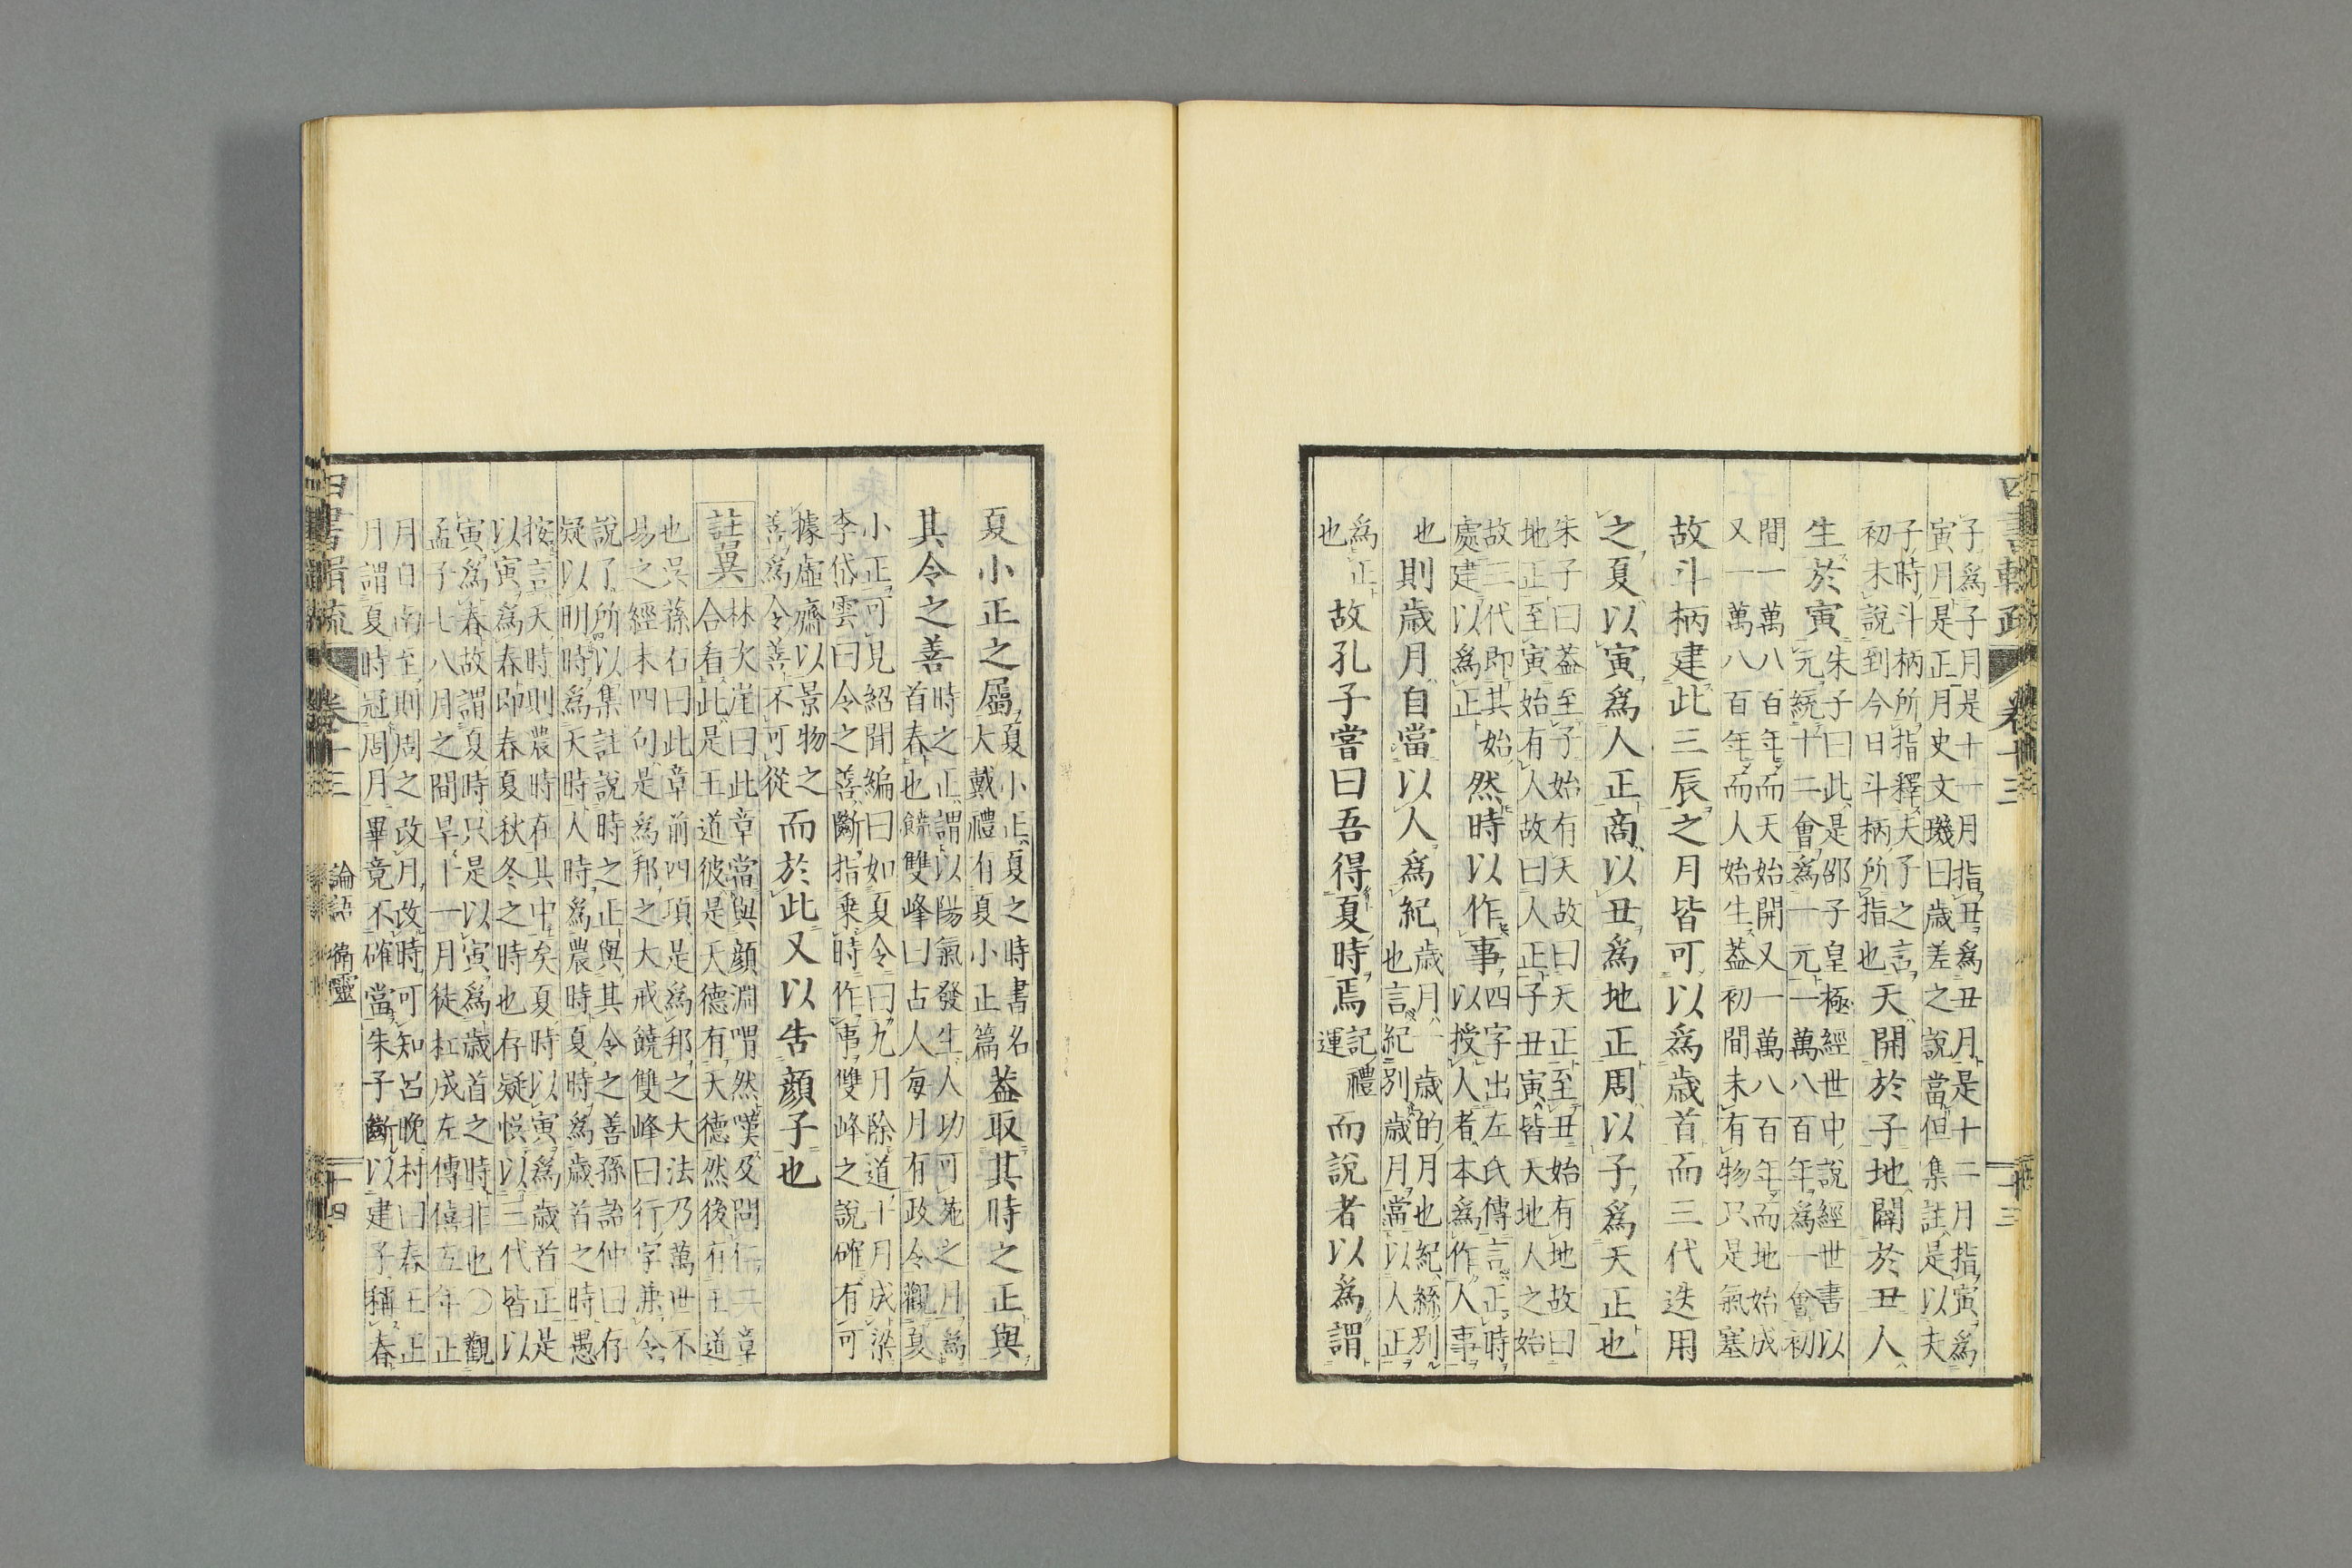 子爲子月是十一月指丑爲丑月是十二月指寅爲
寅月是正月史文璣曰歲差之說當但集註是以夫
子時斗柄所指釋夫子之言
初未說到今日斗柄所指也
天開於子地闢於丑人
生於寅
朱子曰此是邵子皇極經世中說經世書以
元統十二會爲一元一萬八百年爲一會初
間一萬八百年而天始開又一萬八百年而地始成
又一萬八百年而人始生蓋初間未有物只是氣塞
故斗柄建此三辰之月皆可以爲歲首而三代迭用
之夏以寅爲人正商以丑爲地正周以子爲天正也
朱子曰蓋至子始有天故曰天正至丑始有地故曰
地正至寅始有人故曰人正子丑寅皆天地人之始
故三代即其始
處建以爲正
然時以作事
四字出左氏傳言正時
以授人者本爲作人事
也
則歲月自當以人爲紀
歲月一歲的月也紀絲別
也言紀別歲月當以人正
爲正
也
故孔子嘗曰吾得夏時焉
記禮
運
而說者以爲謂
夏小正之屬
夏小正夏之時書名
大戴禮有夏小正篇
蓋取其時之正與
其令之善
時之正謂以陽氣發生人功可施之月爲
首春也饒雙峰曰古人每月有政令觀夏
小正可見紹聞編曰如夏令曰九月除道十月成梁
李岱雲曰令之善斷指乗時作事雙峰之說確有可
據虛齋以景物之
善爲令善不可從
而於此又以告顏子也
註異
林次崖曰此章當與顏淵喟然嘆及問仁二章
合看此是王道彼是天德有天德然後有王道
也吳蓀右曰此章前四項是爲邦之大法乃萬世不
易之經末四句是爲邦之大戒饒雙峰曰行字兼令
說了所以集註說時之正與其令之善孫詒仲曰存
疑以明時爲天時人時爲農時夏時爲歲首之時愚
按言天時則農時在其中矣夏時以寅爲歲首正是
以寅爲春即春夏秋冬之時也存疑悞以三代皆以
寅爲春故謂夏時只是以寅爲歲首之時非也〇觀
孟子七八月之間旱十一月徒杠成左傳僖五年正
月日南至則周之改月改時可知呂晚村曰春王正
月謂夏時冠周月畢竟不確當朱子斷以建子稱春
卷十三
論語
衛靈
十四
卷十三
十三